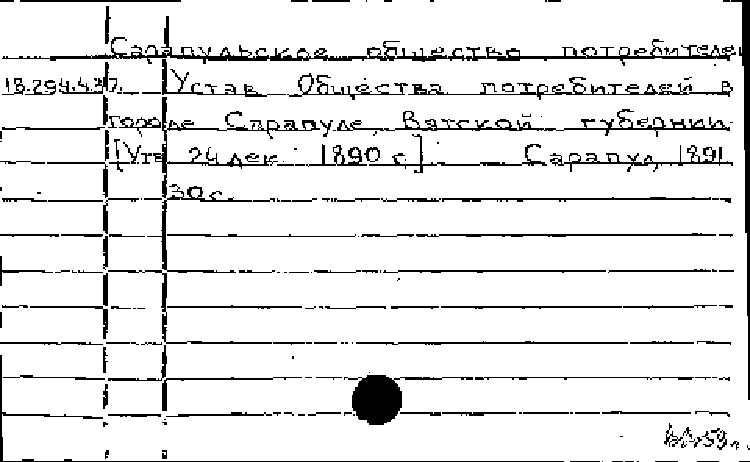 Сарапульское общество потребителей
18.294.4.37. Устав Общества потребителей в
городе Сарапуле, Вятской губернии.
[Утв 24 дек 1890 г.] Сарапул, 1891
30 с.